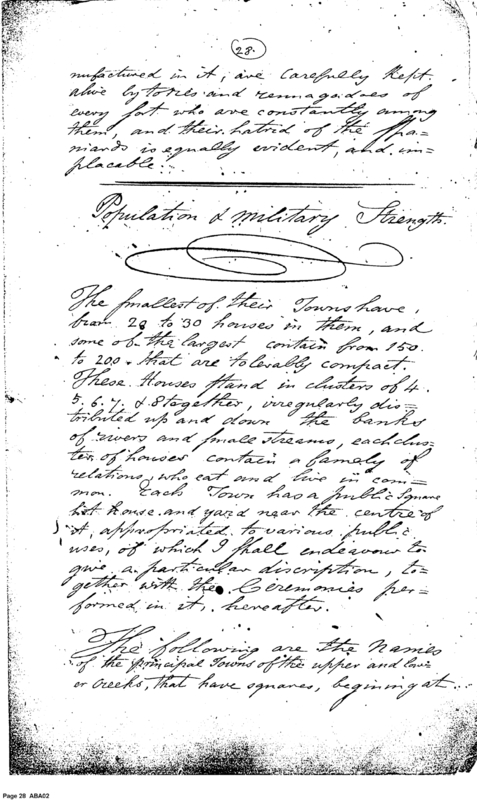 28.
nufactured in it, are carefully kept
alive by tories and rennagadoes of
every sort who are constantly among
them, and their hatrid of the Spa=
niards is equally evident, and im=
placable.
Population & military Strength.
The smallest of their Towns have,
from 20 to 30 houses in them, and
some of the largest contain from 150
to 200. that are tolerably compact.
These Houses stand in clusters of 4.
5. 6. 7. & 8 together, irregularly dis=
tributed up and down the banks
of rivers and small streams, each clus=
ter of houses contain a famely of
relations, who eat and live in com=
mon. Each Town has a public Square
hot house and yard near the centre of
it, appropriated to various public
uses, of which I shall endeavour to
give a particular discription, to=
gether with the Ceremonies per=
formed in it, hereafter.
The following are the Names
of the principal Towns of the upper and low=
er Creeks, that have squares, beginning at
Page 28 ABA02